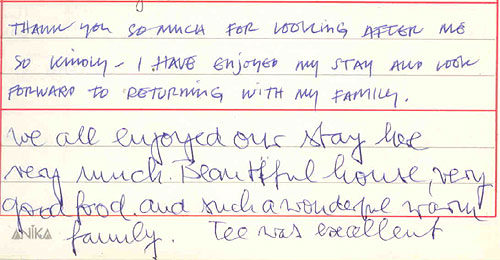 THANK YOU SO MUCH FOR LOOKING AFTER ME
SO KINDLY - I HAVE ENJOYED MY STAY AND LOOK
FORWARD TO RETURNING WITH MY FAMILY.
We all enjoyed our stay here
very much. Beautiful house, very
good food. and such a wonderful warm
family. Tee was excellent
ANIKA